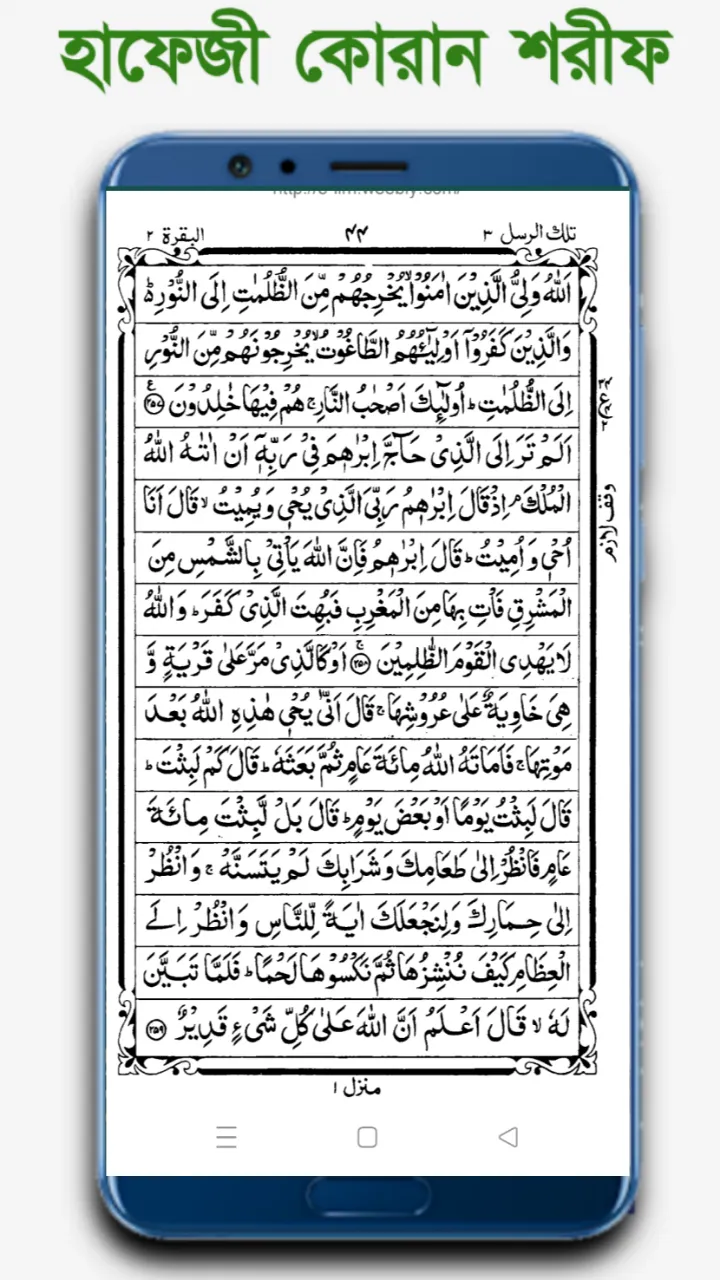 হাফেজী কোরান শরীফ
تلك الرسل ٣
٤٤
البقرة ٢
اَللّٰهُ وَلِىُّ الَّذِيْنَ اٰمَنُوْا ۙ يُخْرِجُهُمْ مِّنَ الظُّلُمٰتِ اِلَى النُّوْرِ ؕ
وَالَّذِيْنَ كَفَرُوْۤا اَوْلِيٰٓـُٔهُمُ الطَّاغُوْتُ ۙ يُخْرِجُوْنَهُمْ مِّنَ النُّوْرِ
اِلَى الظُّلُمٰتِ ؕ اُولٰٓئِكَ اَصْحٰبُ النَّارِ ۚ هُمْ فِيْهَا خٰلِدُوْنَ ﴿۲۵۷﴾
اَلَمْ تَرَ اِلَى الَّذِىْ حَآجَّ اِبْرٰهٖمَ فِىْ رَبِّهٖۤ اَنْ اٰتٰىهُ اللّٰهُ
الْمُلْكَ ۘ اِذْ قَالَ اِبْرٰهٖمُ رَبِّىَ الَّذِىْ يُحْىٖ وَيُمِيْتُ ۙ قَالَ اَنَا
اُحْىٖ وَاُمِيْتُ ؕ قَالَ اِبْرٰهٖمُ فَاِنَّ اللّٰهَ يَاْتِىْ بِالشَّمْسِ مِنَ
الْمَشْرِقِ فَاْتِ بِهَا مِنَ الْمَغْرِبِ فَبُهِتَ الَّذِىْ كَفَرَ ؕ وَاللّٰهُ
لَا يَهْدِى الْقَوْمَ الظّٰلِمِيْنَ ﴿۲۵۸﴾ اَوْ كَالَّذِىْ مَرَّ عَلٰى قَرْيَةٍ وَّ
هِىَ خَاوِيَةٌ عَلٰى عُرُوْشِهَا ۚ قَالَ اَنّٰى يُحْىٖ هٰذِهِ اللّٰهُ بَعْدَ
مَوْتِهَا ۚ فَاَمَاتَهُ اللّٰهُ مِائَةَ عَامٍ ثُمَّ بَعَثَهٗ ؕ قَالَ كَمْ لَبِثْتَ ؕ
قَالَ لَبِثْتُ يَوْمًا اَوْ بَعْضَ يَوْمٍ ؕ قَالَ بَلْ لَّبِثْتَ مِائَةَ
عَامٍ فَانْظُرْ اِلٰى طَعَامِكَ وَشَرَابِكَ لَمْ يَتَسَنَّهْ ۚ وَانْظُرْ
اِلٰى حِمَارِكَ وَلِنَجْعَلَكَ اٰيَةً لِّلنَّاسِ وَانْظُرْ اِلَى
الْعِظَامِ كَيْفَ نُنْشِزُهَا ثُمَّ نَكْسُوْهَا لَحْمًا ؕ فَلَمَّا تَبَيَّنَ
لَهٗ ۙ قَالَ اَعْلَمُ اَنَّ اللّٰهَ عَلٰى كُلِّ شَىْءٍ قَدِيْرٌ ﴿۲۵۹﴾
وقف لازم
منزل ١